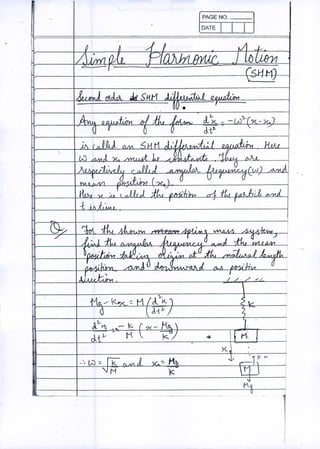 PAGE NO.
DATE
Simple Harmonic Motion
(SHM)
Second order SHM differential equation
Any equation of the form d²x/dt² = -ω²(x-x₀)
is called an SHM differential equation. Here
ω and x₀ must be constants. They are
respectively called angular frequency (ω) and
mean position (x₀).
Here x is called the position of the particle and
t is time.
Q For the shown spring mass system,
find the angular frequency and the mean
position taking origin at the natural length
position and downward as positive
direction.
Mg - kx = M(d²x/dt²)
d²x/dt² = -k/M (x - Mg/k)
∴ ω = √k/M and x₀ = Mg/k
k
M
x
kx
M
Mg